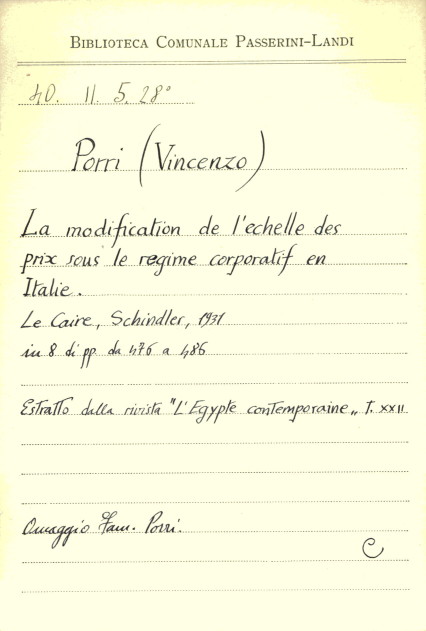 BIBLIOTECA COMUNALE PASSERINI-LANDI
40. 11. 5. 28°
Porri (Vincenzo)
La modification de l'echelle des
prix sous le regime corporatif en
Italie.
Le Caire, Schindler, 1931
in 8 di pp. da 476 a 486
Estratto dalla rivista "L'Egypte contemporaine„ T. XXII
Omaggio Fam. Porri.
C